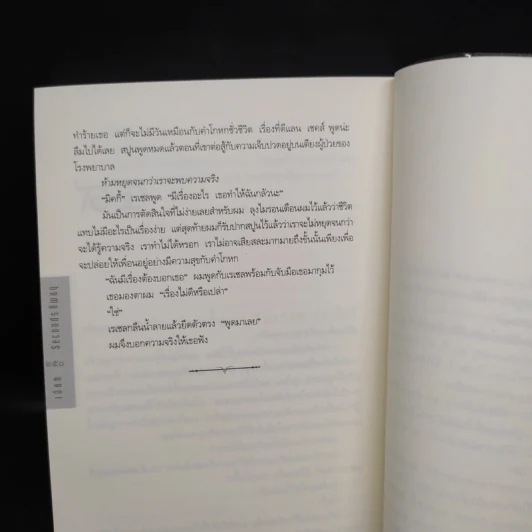 ทำร้ายเธอ แต่ก็จะไม่มีวันเหมือนกับคำโกหกชั่วชีวิต เรื่องที่ดีแลน เชคส์ พูดน่ะ
ลืมไปได้เลย สปูนพูดหมดแล้วตอนที่เขาต่อสู้กับความเจ็บปวดอยู่บนเตียงผู้ป่วยของ
โรงพยาบาล
ห้ามหยุดจนกว่าเราจะพบความจริง
“มิคกี้” เรเชลพูด “มีเรื่องอะไร เธอทำให้ฉันกลัวนะ”
มันเป็นการตัดสินใจที่ไม่ง่ายเลยสำหรับผม ลุงไมรอนเตือนผมไว้แล้วว่าชีวิต
แทบไม่มีอะไรเป็นเรื่องง่าย แต่สุดท้ายผมก็รับปากสปูนไว้แล้วว่าเราจะไม่หยุดจนกว่า
จะได้รู้ความจริง เราทำไม่ได้หรอก เราไม่อาจเสียสละมากมายถึงขั้นนั้นเพียงเพื่อ
จะปล่อยให้เพื่อนอยู่อย่างมีความสุขกับคำโกหก
“ฉันมีเรื่องต้องบอกเธอ” ผมพูดกับเรเชลพร้อมกับจับมือเธอมากุมไว้
เธอมองตาผม “เรื่องไม่ดีหรือเปล่า”
“ใช่”
เรเชลกลืนน้ำลายแล้วยืดตัวตรง “พูดมาเลย”
ผมจึงบอกความจริงให้เธอฟัง